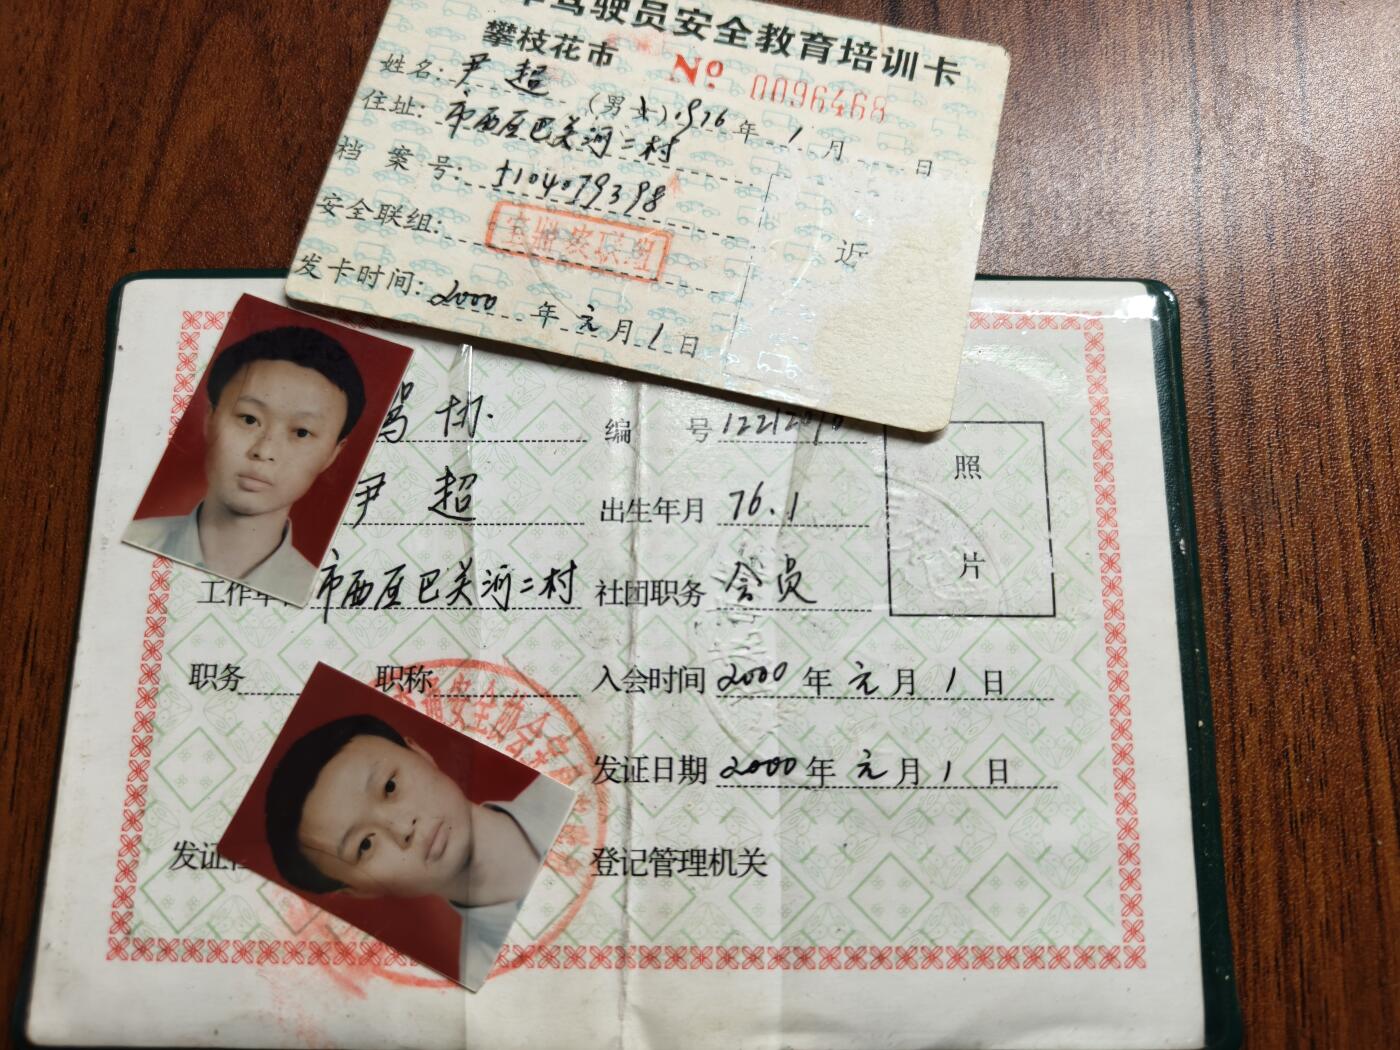 驾驶员安全教育培训卡
攀枝花市 № 0096468
姓名: 尹超 (男 1976年1月 日
住址: 市西区巴关河二村
档案号: 5104079398
近
安全联组: 宝鼎安联组
发卡时间: 2000年元月1日
驾协. 编号
照片
尹超 出生年月 76.1
市西区巴关河二村 社团职务 会员
职务 职称 入会时间 2000年元月1日
通安全协会
发证日期 2000年元月1日
发证 登记管理机关